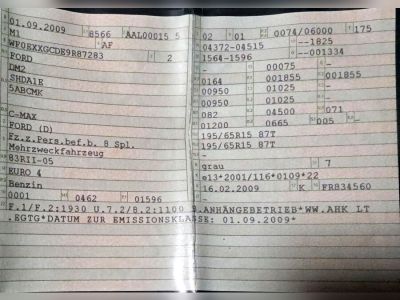 01.09.2009 8566 AAL00015 5
M1 *AF
WF0EXXGCDE9R87283 2
FORD
DM2
SHDA1E
5ABCMK
C-MAX
FORD (D)
Fz.z.Pers.bef.b. 8 Spl.
Mehrzweckfahrzeug
83RII-05
EURO 4
Benzin
0001 0462 01596
02 01 0074/06000 175
04372-04515 --1825
1564-1596 --001334
- 00075 -
0164 001855 001855
00950 01025 -
00950 01025 -
082 04500 071
01200 0665 005 -
195/65R15 87T
195/65R15 87T
-
grau 7
e13*2001/116*0109*22
16.02.2009 K FR834560
F.1/F.2:1930 U.7.2/8.2:1100 B.ANHÄNGEBETRIEB*WW.AHK LT
.EGTG*DATUM ZUR EMISSIONSKLASSE: 01.09.2009*